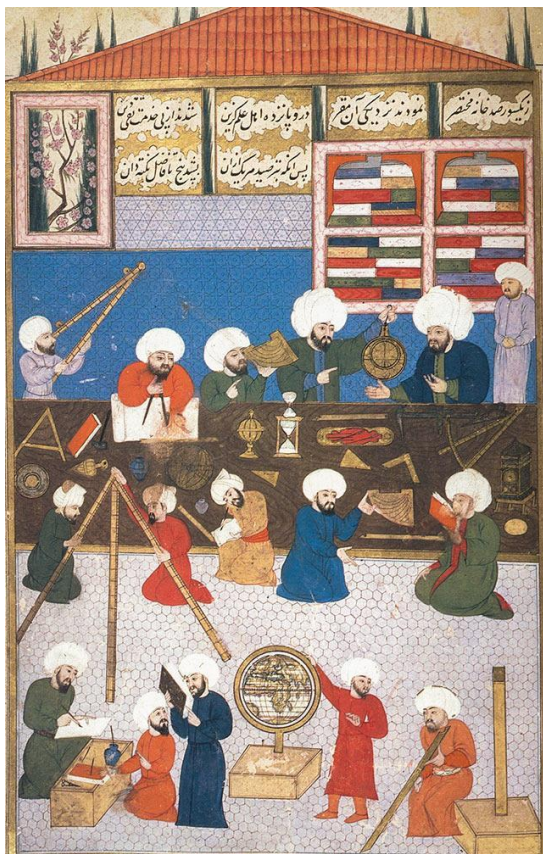 ز یکسو رصد خانه مختصر
نمودند نزدیکی آن مقر
درو پانزده اهل علم گزین
شدند از پی خدمت تقی دین
پس انکه بترصید هر یک ازان
بشد پنج با فاضل نکته دان